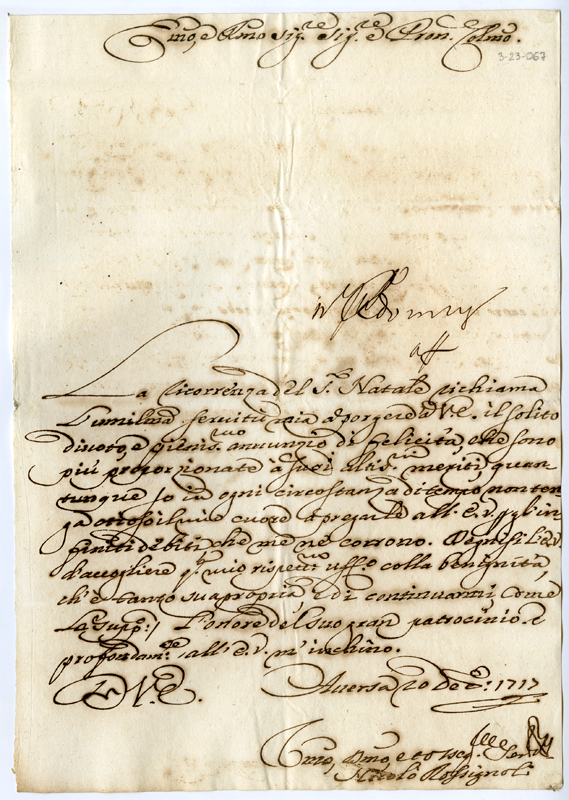 Emo, e Rmo Sig.re Sig.re e Pron. Colmo.
3-23-067
La ricorrenza del S. Natale richiama
l'umilma servitù mia à porgere à V.E. il solito
divoto, e annunzio di felicità, che sono
più proporzionate à suoi meriti, quan
tunque Io in ogni circostanza di tempo non ten
ga otioso il mio cuore à pregarle all' E.V. in
finiti debiti, che me ne corrono. Degnisi l'E.V.
d'accogliere q.o mio uff.o colla benignità,
ch'è tanto sua propria e di continuarmi come
La supp:/ l'onore del suo gran patrocinio. e
profondam.te all' E.V. m'inchino.
Di V.E.
Aversa 20 Dec.e: 1717
Nicolò Rossignoli